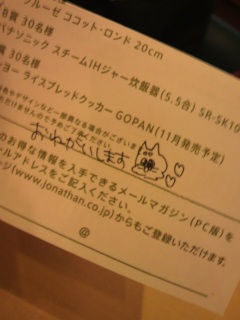 ルーゼ ココット・ロンド 20cm
B賞 30名様
パナソニック スチームIHジャー炊飯器(5.5合) SR-SK10
賞 30名様
ヨー ライスブレッドクッカー GOPAN(11月発売予定)
デザインなど一部異なる場合がございま
おねがいします
のお得な情報を入手できるメールマガジン(PC版)を
ールアドレスをご記入ください。
ージ(www.jonathan.co.jp)からもご登録いただけます。
@